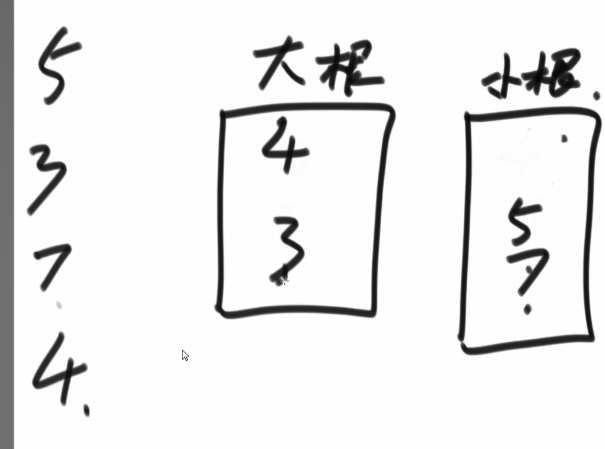 5
3
7
4.
大根
4
3
小根.
5
7